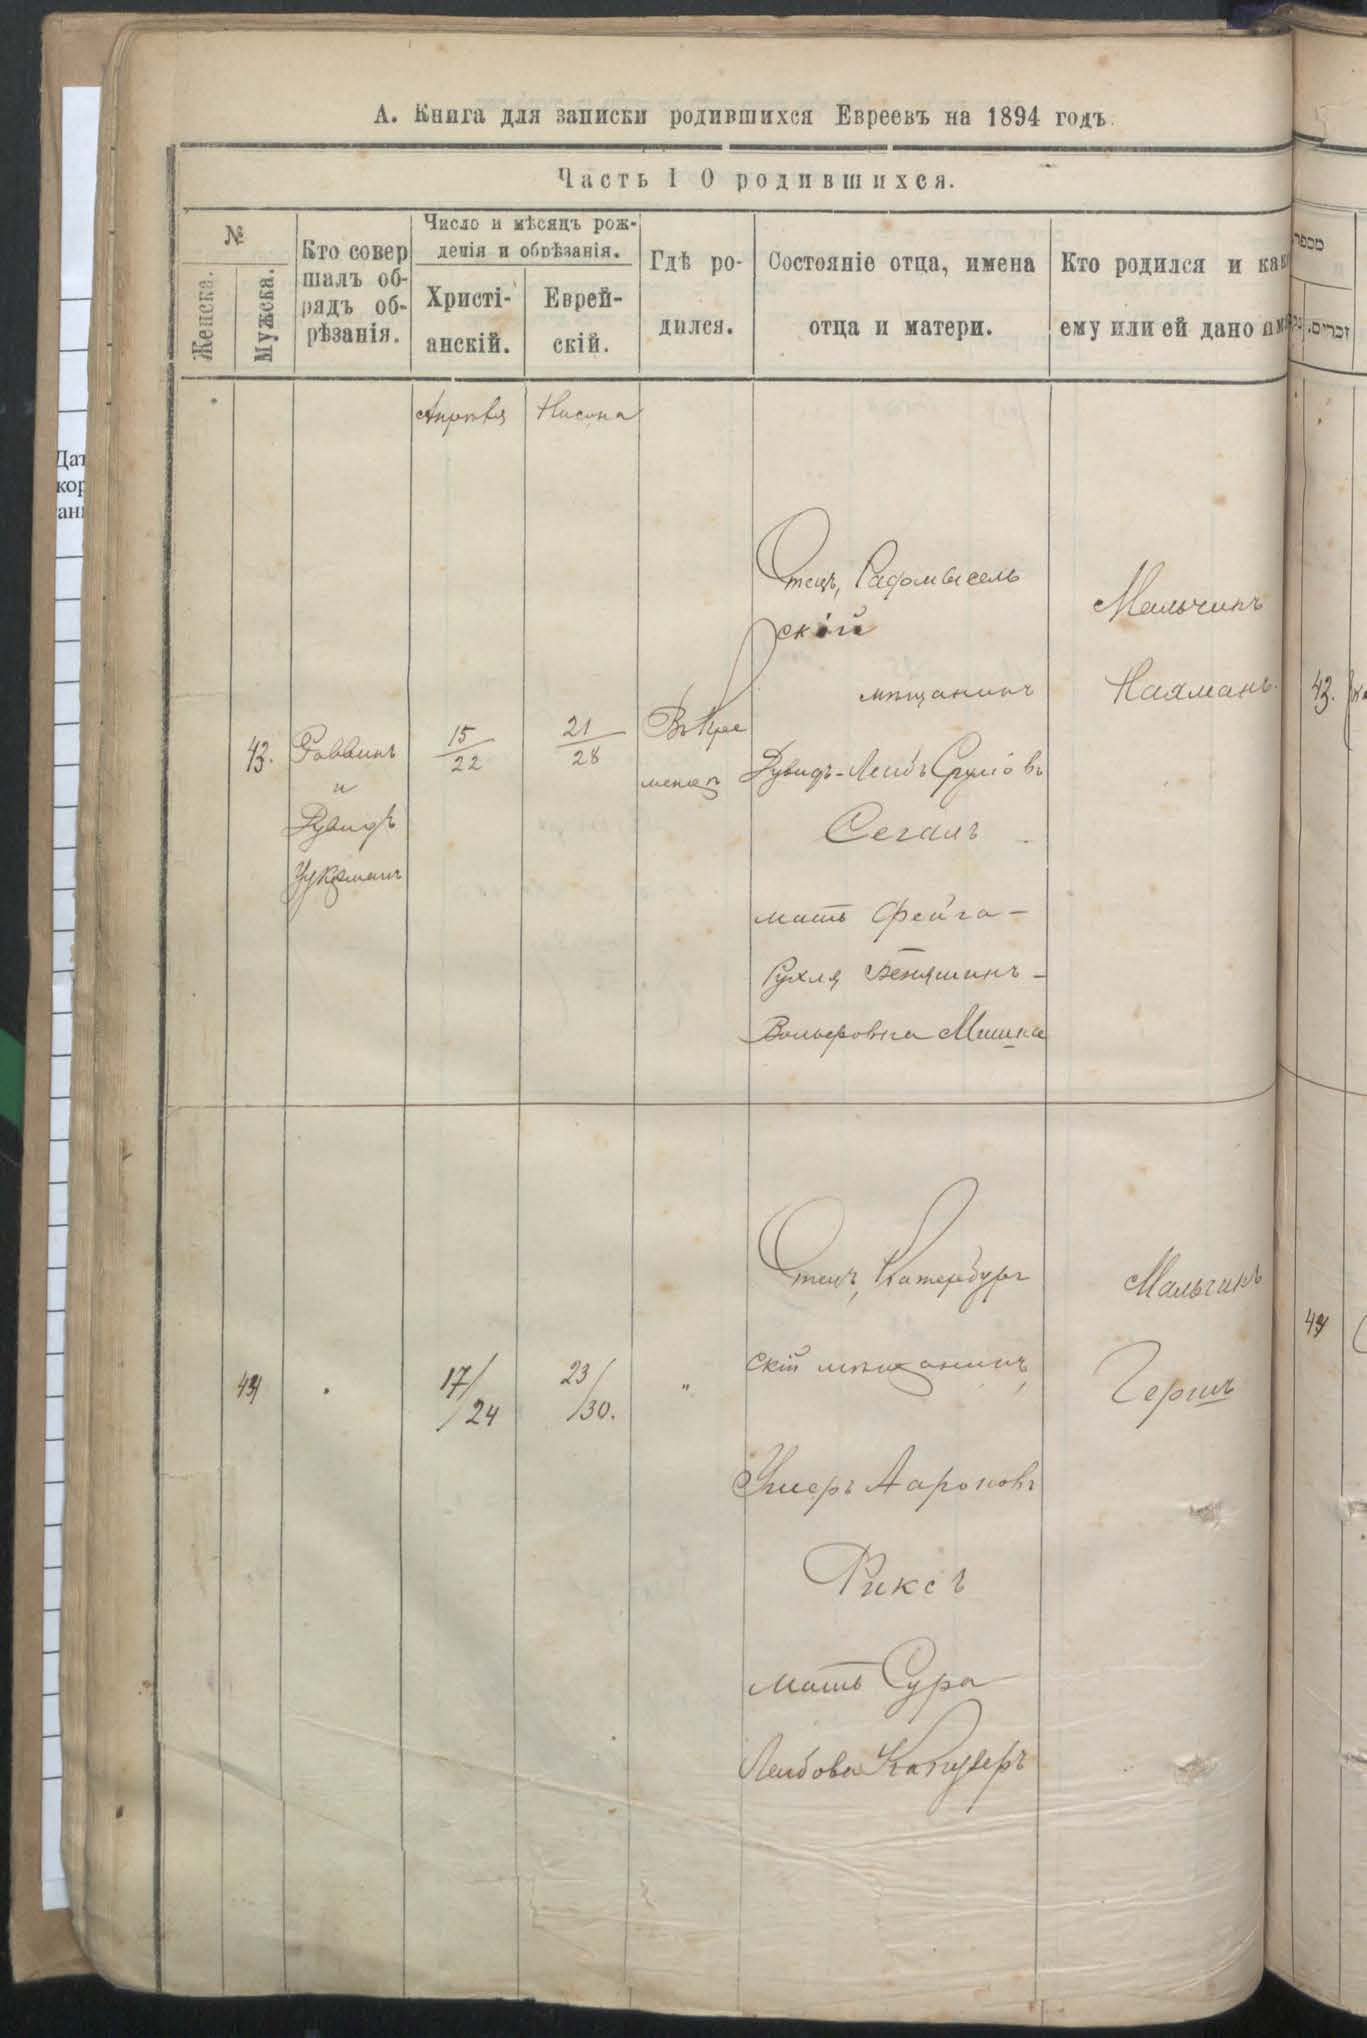 А. Книга для записки родившихся Евреевъ на 1894 годъ.
Часть I О родившихся.
№
Женска.
Мужска.
Кто совер
шалъ об-
рядъ об-
рѣзанія.
Число и мѣсяцъ рож-
денія и обрѣзанія.
Христі-
анскій.
Еврей-
скій.
Гдѣ ро-
дился.
Состояніе отца, имена
отца и матери.
Кто родился и как
ему или ей дано им
Апрѣля
Нисана
43.
Раввинъ
и
Дувидъ
Цукерманъ
15
22
21
28
Въ Кре
менцѣ
Отецъ, Радомысель
скій
мѣщанинъ
Дувидъ-Лейбъ Сруліовъ
Сегалъ
мать Фейга-
Рухля Беніяминъ-
Вольфовна
Мальчикъ
Нахманъ.
44
17/
/24
23/
/30.
"
Отецъ, Катербург
скій мѣщанинъ,
Ушеръ Аароновъ
Риксъ
мать Сура
Лейбова
Мальчикъ
Гершъ
מספר
זכרים.
43.
44
Дат
кор
ани